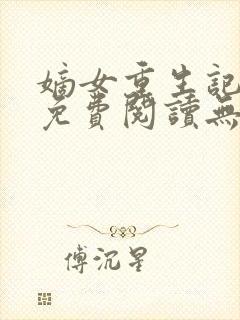 嫡女重生記
免費閱讀無
傅沉星